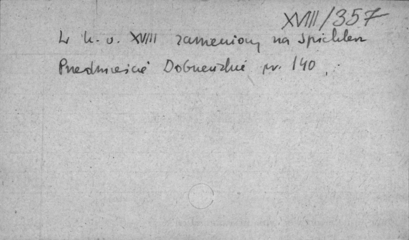 XVIII/357
W k. v. XVIII zamieniony na spichlerz
Przedmieście Dobrzeńskie nr. 140